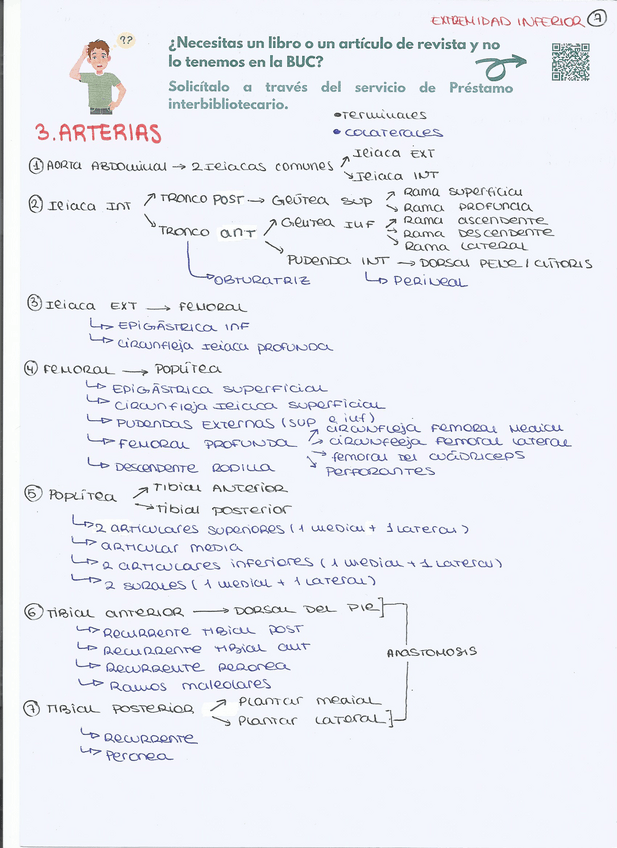 EXTREMIDAD INFERIOR 7
??
¿Necesitas un libro o un artículo de revista y no
lo tenemos en la BUC?
Solicítalo a través del servicio de Préstamo
interbibliotecario.
• Terminales
• Colaterales
3. ARTERIAS
① AORTA ABDOMINAL → 2 ILIACAS COMUNES ↗ ILIACA EXT
↘ ILIACA INT
② ILIACA INT ↗ TRONCO POST → GLÚTEA SUP ↗ RAMA SUPERFICIAL
↘ RAMA PROFUNDA
↘ TRONCO ANT ↗ GLÚTEA INF ↗ RAMA ASCENDENTE
→ RAMA DESCENDENTE
↘ RAMA LATERAL
↘ PUDENDA INT → DORSAL PENE / CLÍTORIS
↳ OBTURATRIZ ↳ PERINEAL
③ ILIACA EXT → FEMORAL
↳ EPIGÁSTRICA INF
↳ CIRCUNFLEJA ILIACA PROFUNDA
④ FEMORAL → POPLÍTEA
↳ EPIGÁSTRICA SUPERFICIAL
↳ CIRCUNFLEJA ILIACA SUPERFICIAL
↳ PUDENDAS EXTERNAS (SUP e inf)
↳ FEMORAL PROFUNDA ↗ CIRCUNFLEJA FEMORAL MEDIAL
→ CIRCUNFLEJA FEMORAL LATERAL
→ femoral del CUÁDRICEPS
↘ PERFORANTES
↳ DESCENDENTE RODILLA
⑤ POPLÍTEA ↗ TIBIAL ANTERIOR
↘ Tibial posterior
↳ 2 ARTICULARES SUPERIORES (1 MEDIAL + 1 LATERAL)
↳ ARTICULAR MEDIA
↳ 2 ARTICULARES INFERIORES (1 MEDIAL + 1 LATERAL)
↳ 2 SURALES (1 MEDIAL + 1 LATERAL)
⑥ TIBIAL ANTERIOR → DORSAL DEL PIE
↳ RECURRENTE TIBIAL POST
↳ RECURRENTE TIBIAL ANT
↳ RECURRENTE PERONEA
↳ RAMOS MALEOLARES
ANASTOMOSIS
⑦ TIBIAL POSTERIOR ↗ PLANTAR MEDIAL
↘ PLANTAR LATERAL
↳ RECURRENTE
↳ Peronea